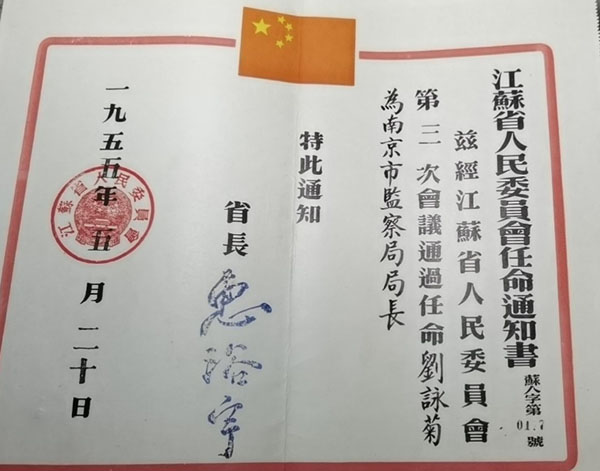 江蘇省人民委員會任命通知書
蘇人字第01.7號
茲經江蘇省人民委員會
第三次會議通過任命劉詠菊
為南京市監察局局長
特此通知
省長 惠浴宇
一九五五年五月二十日
江蘇省人民委員會